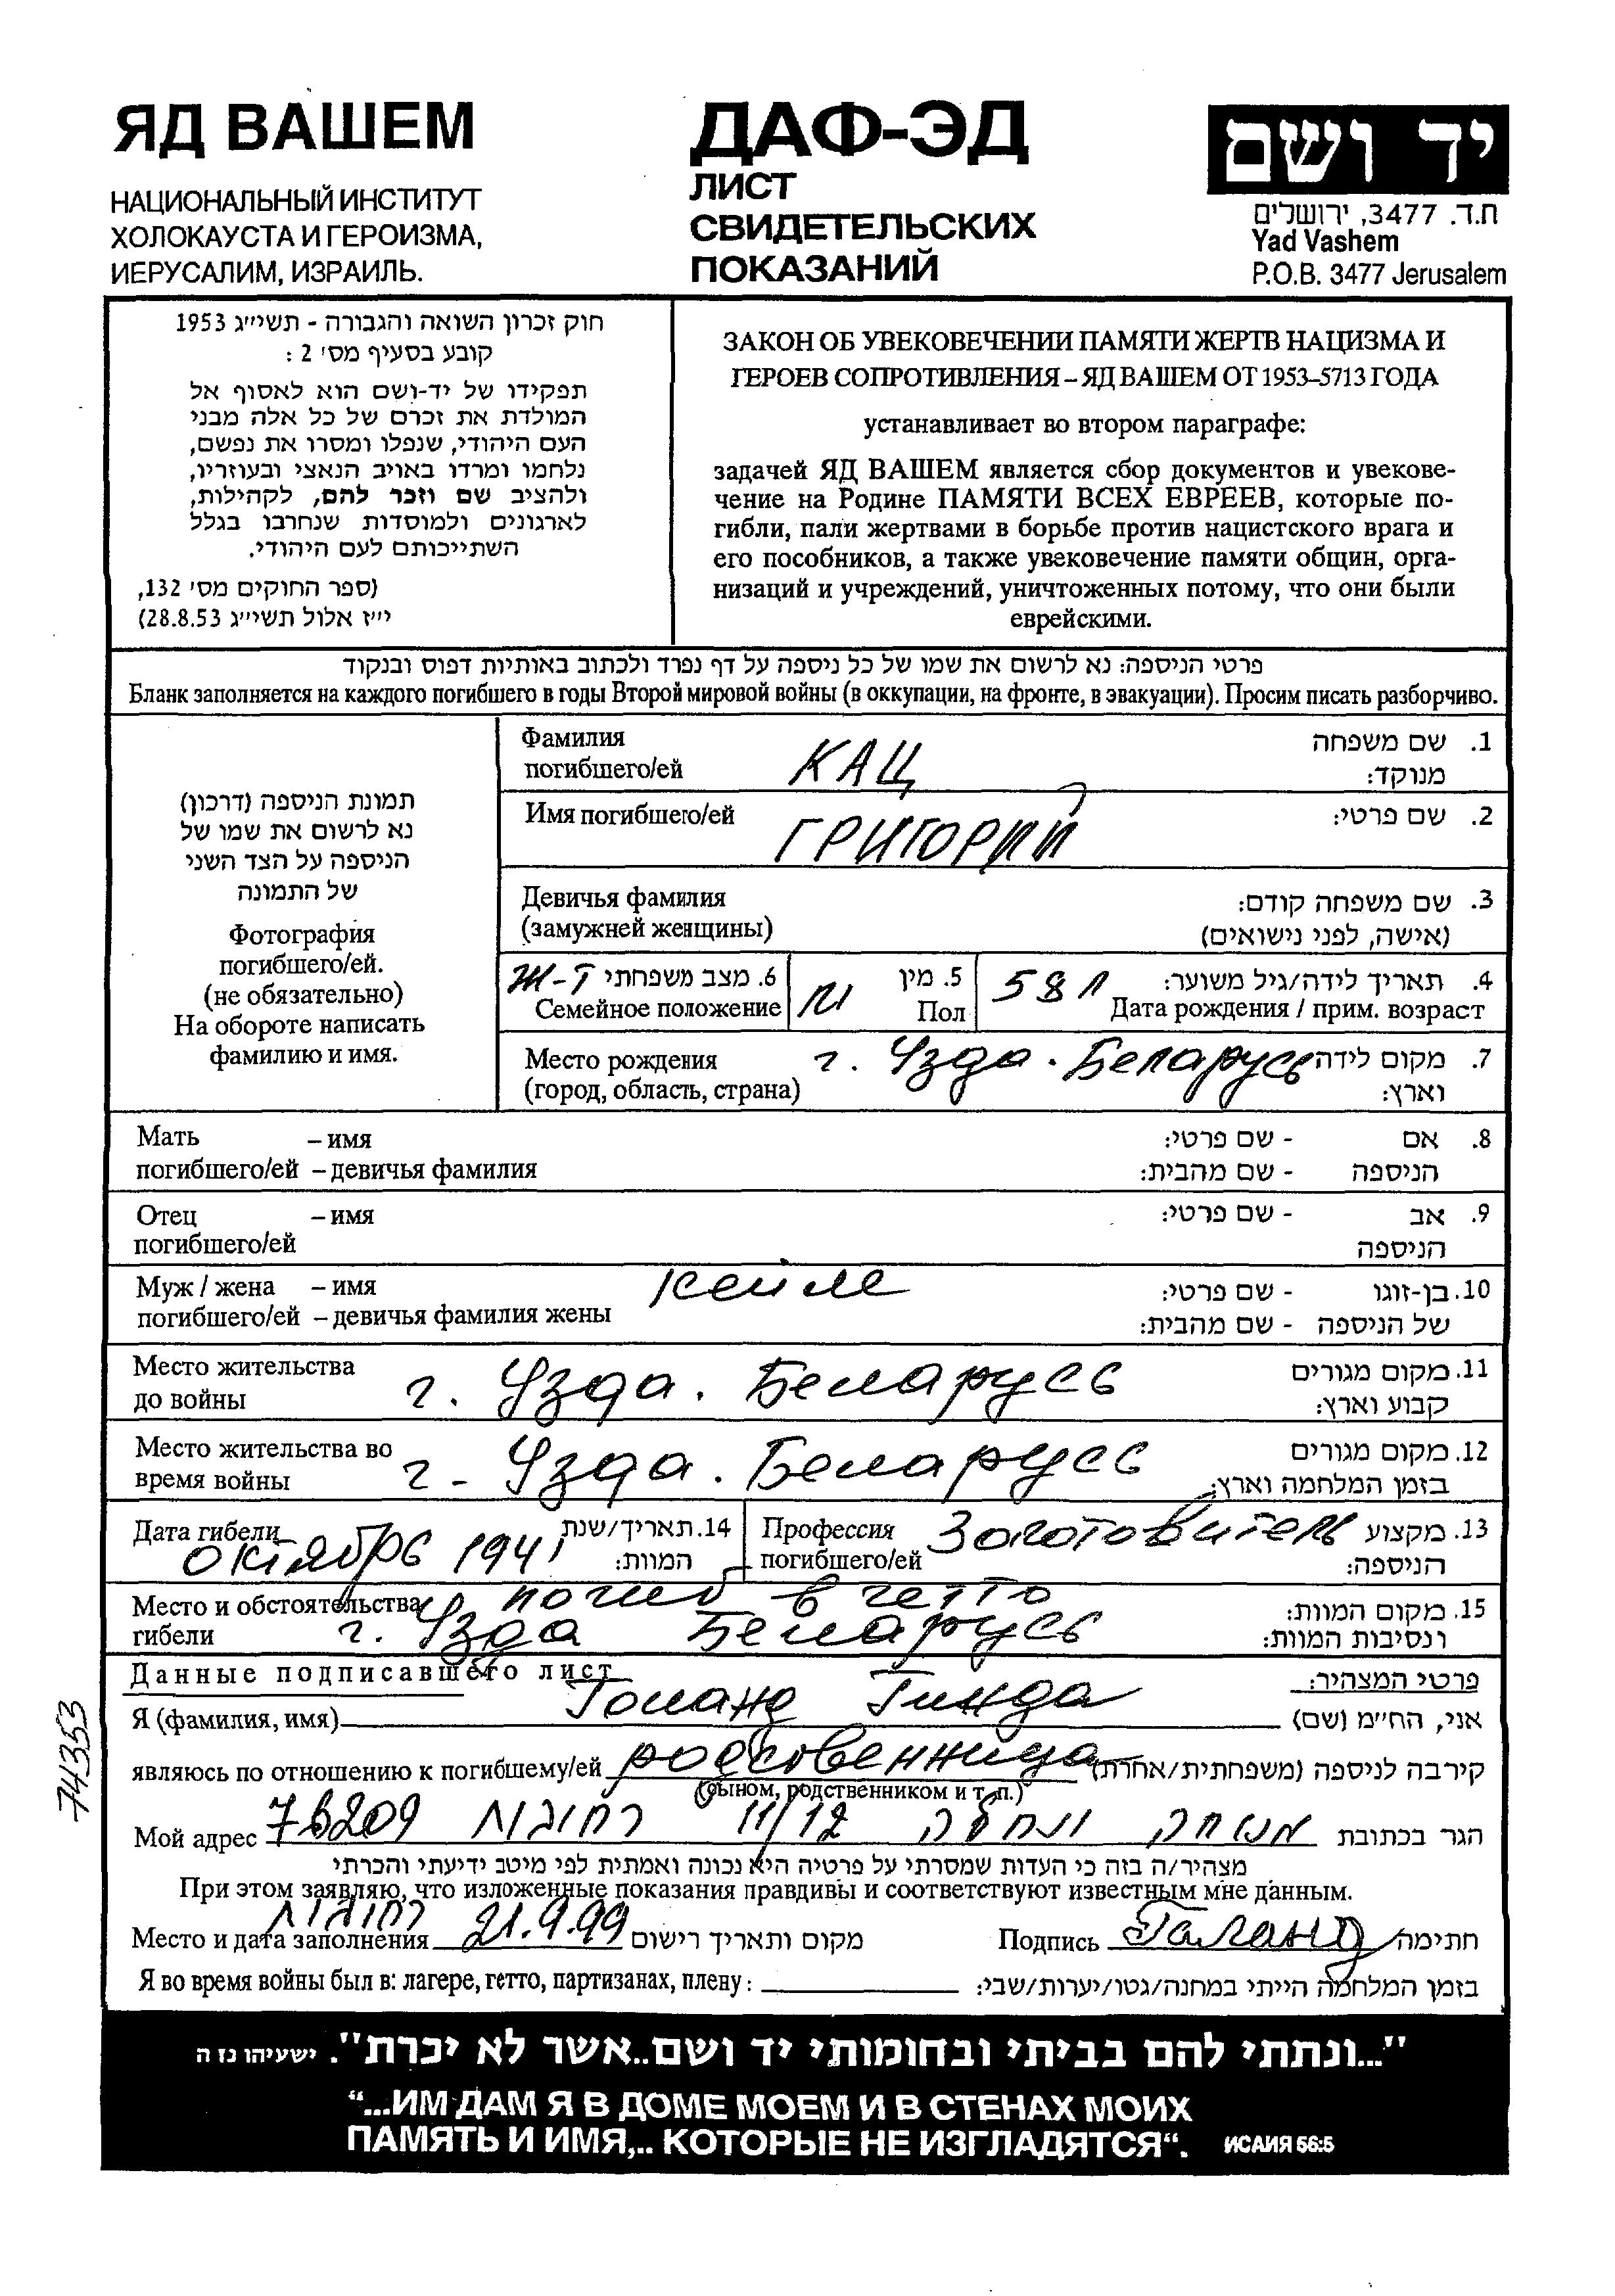 ЯД ВАШЕМ
НАЦИОНАЛЬНЫЙ ИНСТИТУТ
ХОЛОКАУСТА И ГЕРОИЗМА,
ИЕРУСАЛИМ, ИЗРАИЛЬ.
ДАФ-ЭД
ЛИСТ
СВИДЕТЕЛЬСКИХ
ПОКАЗАНИЙ
יד ושם
ת.ד. 3477, ירושלים
Yad Vashem
P.O.B. 3477 Jerusalem
חוק זכרון השואה והגבורה - תשי״ג 1953
קובע בסעיף מס׳ 2 :
תפקידו של יד-ושם הוא לאסוף אל
המולדת את זכרם של כל אלה מבני
העם היהודי, שנפלו ומסרו את נפשם,
נלחמו ומרדו באויב הנאצי ובעוזריו,
ולהציב שם וזכר להם, לקהילות,
לארגונים ולמוסדות שנחרבו בגלל
השתייכותם לעם היהודי.
(ספר החוקים מס׳ 132,
י״ז אלול תשי״ג 28.8.53)
ЗАКОН ОБ УВЕКОВЕЧЕНИИ ПАМЯТИ ЖЕРТВ НАЦИЗМА И
ГЕРОЕВ СОПРОТИВЛЕНИЯ – ЯД ВАШЕМ ОТ 1953–5713 ГОДА
устанавливает во втором параграфе:
задачей ЯД ВАШЕМ является сбор документов и увекове-
чение на Родине ПАМЯТИ ВСЕХ ЕВРЕЕВ, которые по-
гибли, пали жертвами в борьбе против нацистского врага и
его пособников, а также увековечение памяти общин, орга-
низаций и учреждений, уничтоженных потому, что они были
еврейскими.
פרטי הניספה: נא לרשום את שמו של כל ניספה על דף נפרד ולכתוב באותיות דפוס ובנקוד
Бланк заполняется на каждого погибшего в годы Второй мировой войны (в оккупации, на фронте, в эвакуации). Просим писать разборчиво.
תמונת הניספה (דרכון)
נא לרשום את שמו של
הניספה על הצד השני
של התמונה
Фотография
погибшего/ей.
(не обязательно)
На обороте написать
фамилию и имя.
Фамилия КАЦ 1. שם משפחה
погибшего/ей מנוקד:
Имя погибшего/ей ГРИГОРИЙ 2. שם פרטי:
Девичья фамилия 3. שם משפחה קודם:
(замужней женщины) (אישה, לפני נישואים)
Ж-Т 6. מצב משפחתי 5. מין 58 л 4. תאריך לידה/גיל משוער:
Семейное положение М Пол Дата рождения / прим. возраст
Место рождения г. Узда. Беларусь 7. מקום לידה
(город, область, страна) וארץ:
Мать – имя - שם פרטי: 8. אם
погибшего/ей – девичья фамилия - שם מהבית: הניספה
Отец – имя - שם פרטי: 9. אב
погибшего/ей הניספה
Муж / жена – имя Кейле - שם פרטי: 10. בן-זוגו
погибшего/ей – девичья фамилия жены - שם מהבית: של הניספה
Место жительства г. Узда. Беларусь 11. מקום מגורים
до войны קבוע וארץ:
Место жительства во г - Узда. Беларусь 12. מקום מגורים
время войны בזמן המלחמה וארץ:
Дата гибели 14. תאריך/שנת Профессия Заготовитель 13. מקצוע
октябрь 1941 המוות: погибшего/ей הניספה:
Место и обстоятельства погиб в гетто 15. מקום המוות:
гибели г. Узда Беларусь ונסיבות המוות:
Данные подписавшего лист פרטי המצהיר:
Я (фамилия, имя) Голанд Гинда אני, הח״מ (שם)
являюсь по отношению к погибшему/ей родственница קירבה לניספה (משפחתית/אחרת)
(сыном, родственником и т.п.)
Мой адрес 76209 רחובות 11/12 מנוחה ונחלה הגר בכתובת
מצהיר/ה בזה כי העדות שמסרתי על פרטיה היא נכונה ואמתית לפי מיטב ידיעתי והכרתי
При этом заявляю, что изложенные показания правдивы и соответствуют известным мне данным.
Место и дата заполнения רחובות 21.9.99 מקום ותאריך רישום Подпись Галанд חתימה
Я во время войны был в: лагере, гетто, партизанах, плену: בזמן המלחמה הייתי במחנה/גטו/יערות/שבי:
74353
"...ונתתי להם בביתי ובחומותי יד ושם..אשר לא יכרת". ישעיהו נז ה
“...ИМ ДАМ Я В ДОМЕ МОЕМ И В СТЕНАХ МОИХ
ПАМЯТЬ И ИМЯ,.. КОТОРЫЕ НЕ ИЗГЛАДЯТСЯ“. ИСАИЯ 56:5